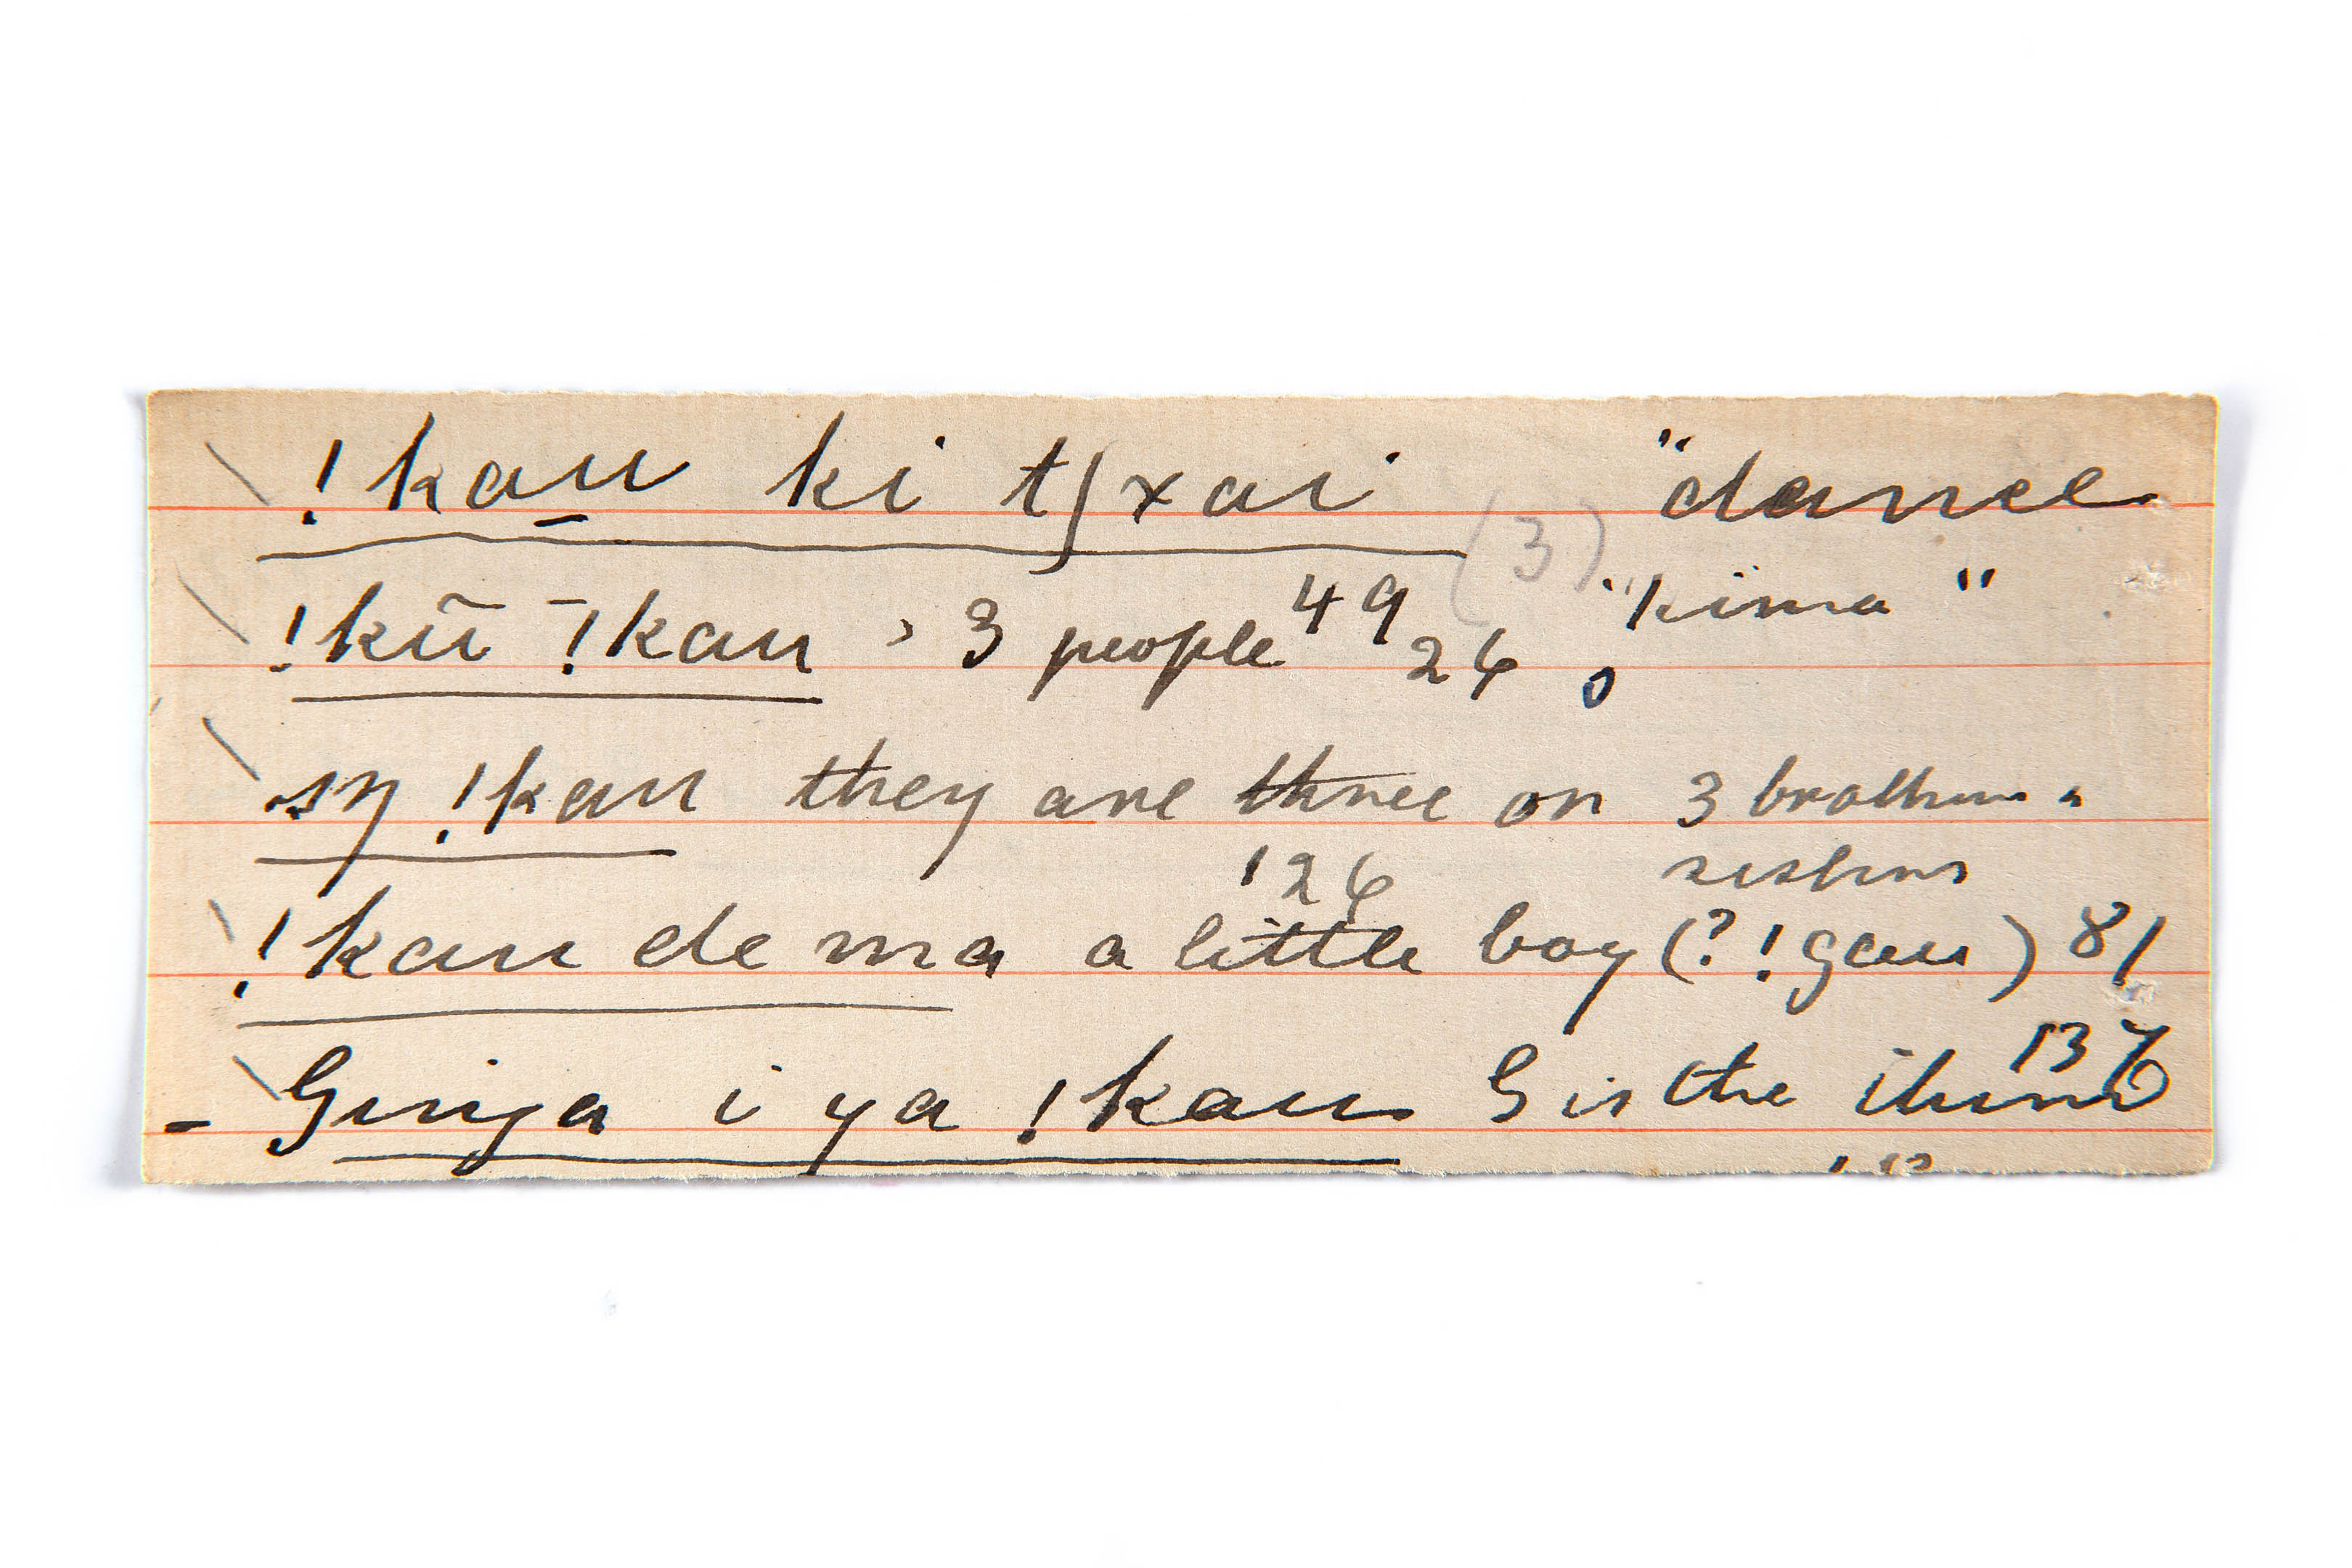 !kau ki tʃxai "dance
(3) "kima"
!kũ !kau , 3 people 49 26
sŋ !kau they are three or 3 brothers &
126 sisters
!kau de ma a little boy (?!gau) 81
137
- Guŋa i ya !kau G is the third